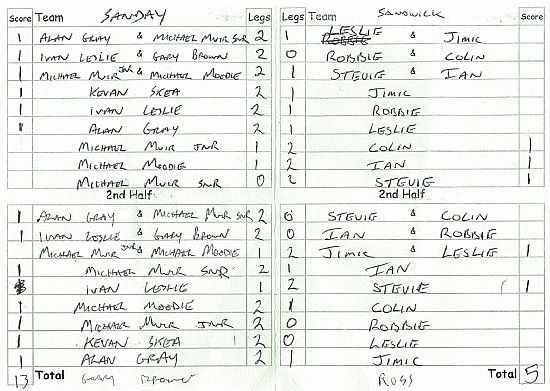 Score Team SANDAY Legs Legs Team SANDWICK Score
1 ALAN GRAY & MICHAEL MUIR SNR 2 1 LESLIE & JIMIC
1 IVAN LESLIE & GARY BROWN 2 0 ROBBIE & COLIN
1 MICHAEL MUIR JNR & MICHAEL MOODIE 2 1 STEVIE & IAN
1 KEVAN SKEA 2 1 JIMIC
1 IVAN LESLIE 2 1 ROBBIE
1 ALAN GRAY 2 1 LESLIE
MICHAEL MUIR JNR 1 2 COLIN 1
MICHAEL MOODIE 1 2 IAN 1
MICHAEL MUIR SNR 0 2 STEVIE 1
2nd Half 2nd Half
1 ALAN GRAY & MICHAEL MUIR SNR 2 0 STEVIE & COLIN
1 IVAN LESLIE & GARY BROWN 2 0 IAN & ROBBIE
MICHAEL MUIR JNR & MICHAEL MOODIE 1 2 JIMIC & LESLIE 1
1 MICHAEL MUIR SNR 2 1 IAN
IVAN LESLIE 1 2 STEVIE 1
1 MICHAEL MOODIE 2 1 COLIN
1 MICHAEL MUIR JNR 2 0 ROBBIE
1 KEVAN SKEA 2 0 LESLIE
1 ALAN GRAY 2 1 JIMIC
13 Total GARY BROWN ROSS Total 5